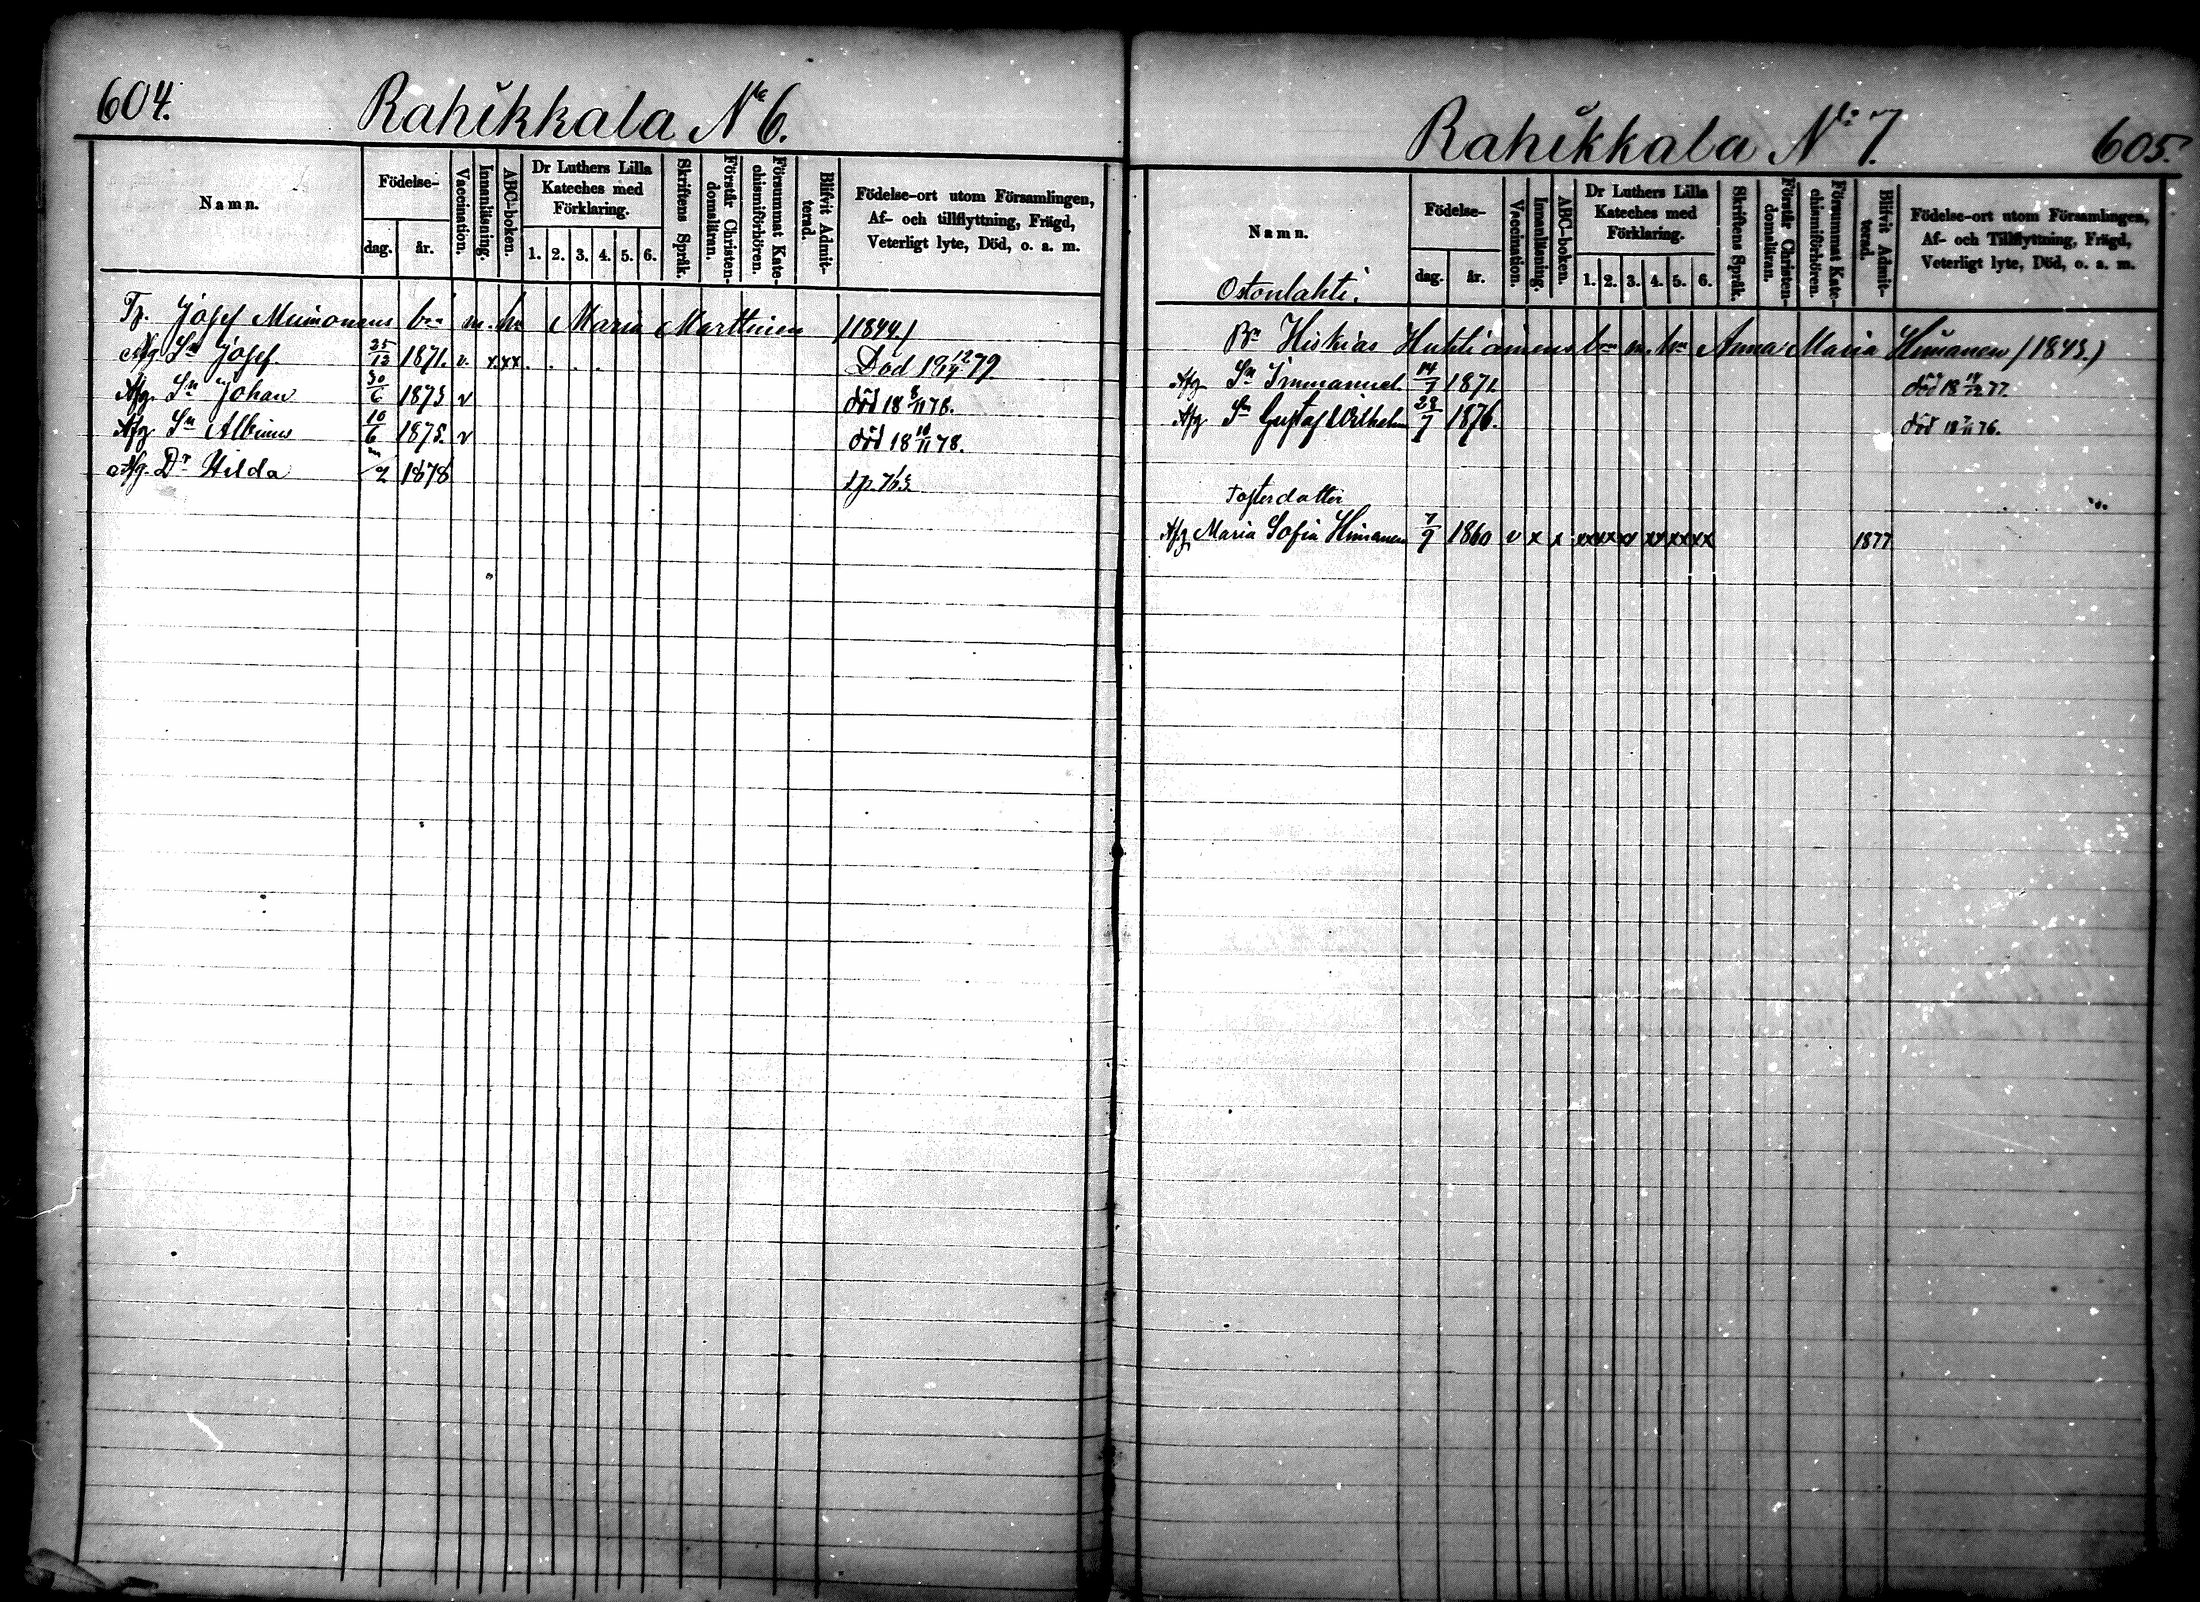 604.
Rahikkala № 6.
Namn.
Födelse-
dag.
år.
Vaccination.
Innanläsning.
ABC-boken.
Dr Luthers Lilla
Kateches med
Förklaring.
1. 2. 3. 4. 5. 6.
Skriftens Språk.
Förstår Christen-
domsläran.
Försummat Kate-
chismiförhören.
Blifvit Admit-
terad.
Födelse-ort utom Församlingen,
Af- och tillflyttning, Frägd,
Veterligt lyte, Död, o. a. m.
Tp. Josef bn m. hu Maria Marttinen (1844.)
Afg. Sn Josef 25/12 1871. v. x. xx . . . . Död 79
Afg. Sn Johan 30/6 1873 v död 18 8/11 78.
Afg. Sn Albinus 10/6 1875. v död 18 10/11 78.
Afg. Dr Hilda /2 1878
Rahikkala № 7.
605.
Namn.
Födelse-
dag.
år.
Vaccination.
Innanläsning.
ABC-boken.
Dr Luthers Lilla
Kateches med
Förklaring.
1. 2. 3. 4. 5. 6.
Skriftens Språk.
Förstår Christen-
domsläran.
Försummat Kate-
chismiförhören.
Blifvit Admit-
terad.
Födelse-ort utom Församlingen,
Af- och Tillflyttning, Frägd,
Veterligt lyte, Död, o. a. m.
Ostonlahti.
Bn Hiskias bn m. hu Anna Maria Himanen (1843.)
Afg. Sn Immanuel 14/7 1872 död 18 77.
Afg. Sn Gustaf Wilhelm 28/7 1876. död 18 76.
Fosterdotter
Afg. Maria Sofia Himanen 7/9 1860 v x x xx xx xx xx xx xx 1877